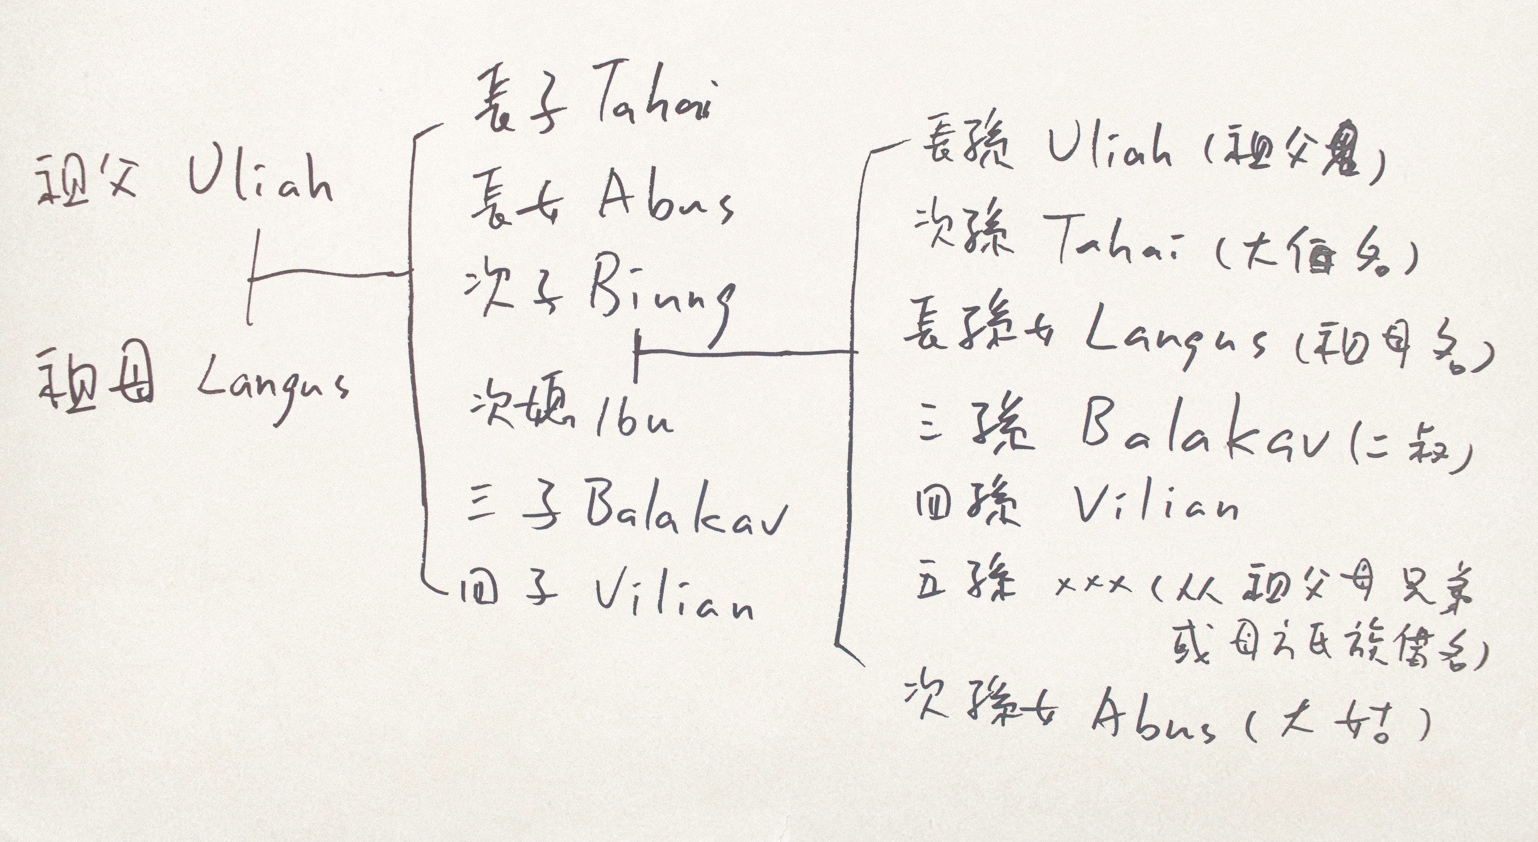 祖父 Uliah
祖母 Langus
長子 Tahai
長女 Abus
次子 Biung
次媳 Ibu
三子 Balakav
四子 Vilian
長孫 Uliah (祖父名)
次孫 Tahai (大伯名)
長孫女 Langus (祖母名)
三孫 Balakav (二叔)
四孫 Vilian
五孫 xxx (从祖父母兄弟
或母方氏族借名)
次孫女 Abus (大姑)